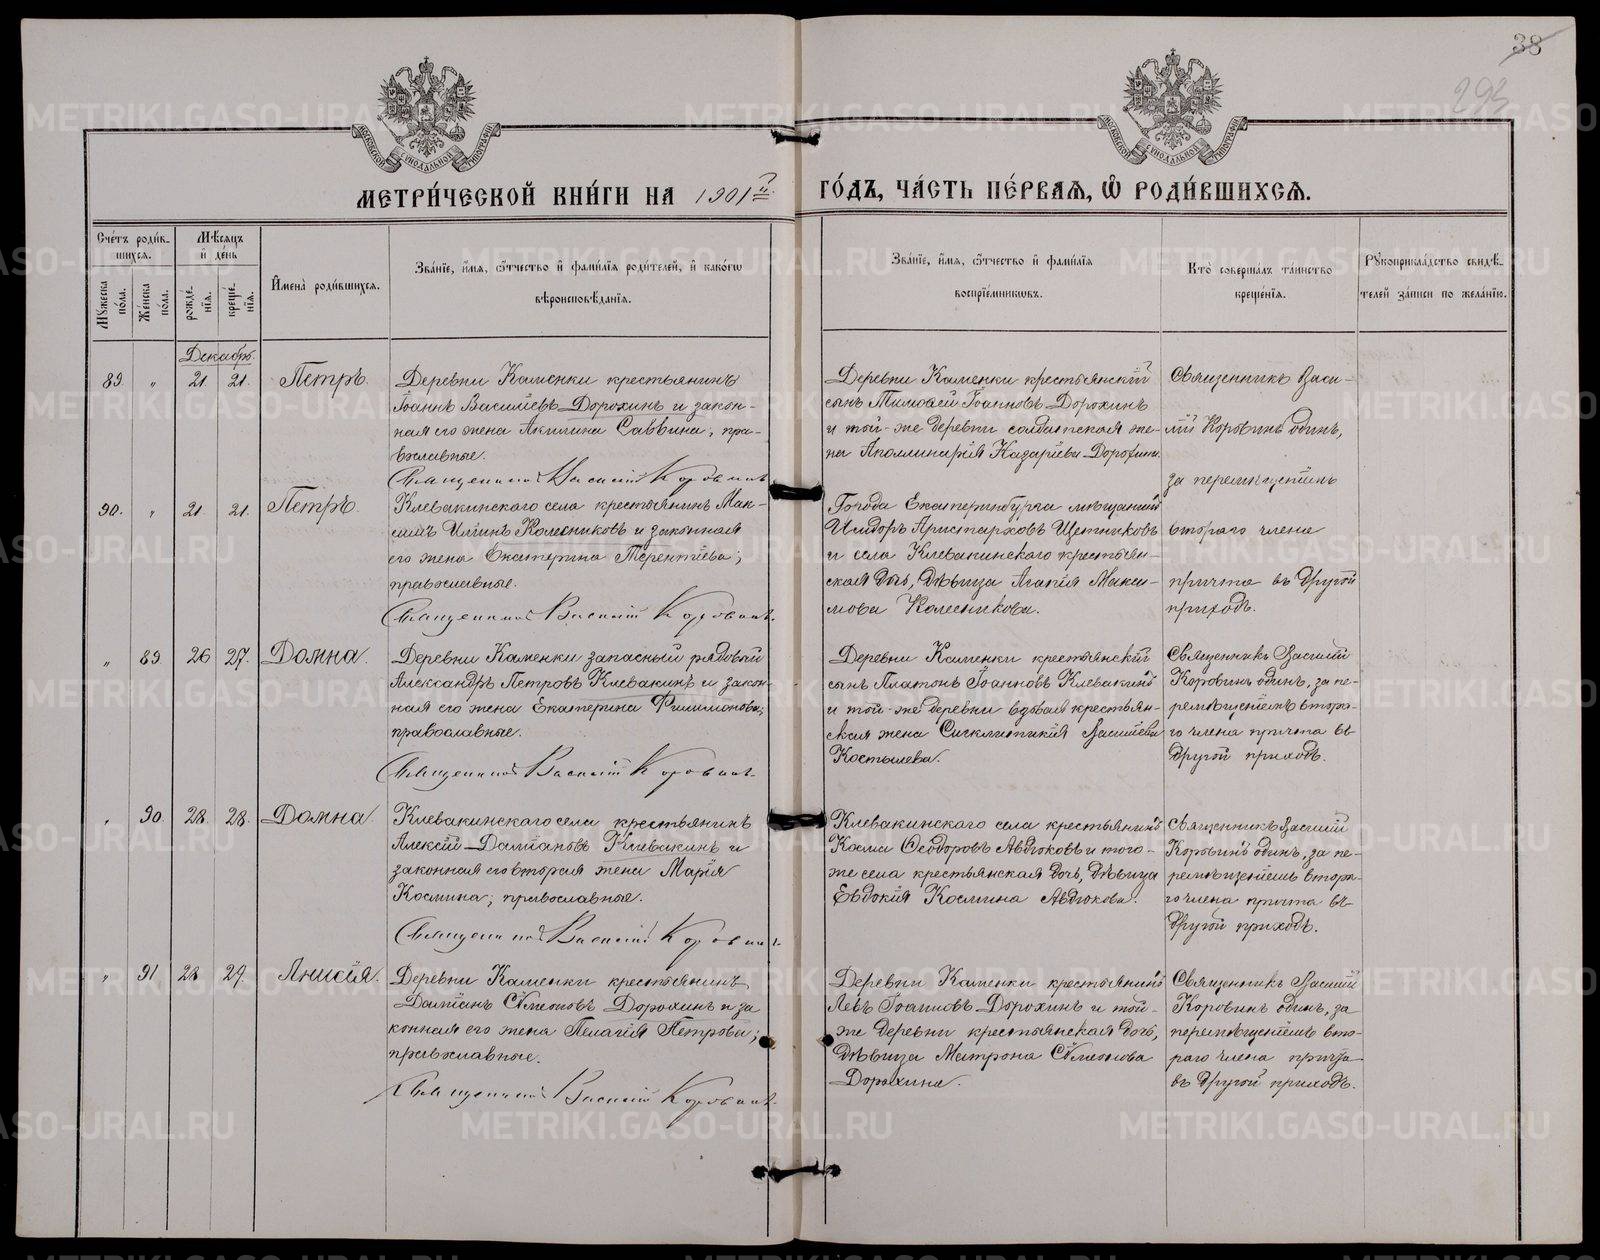 38
293
МЕТРИ́ЧЕСКОЙ КНИ́ГИ НА 1901й
ГО́ДЪ, ЧА́СТЬ ПЕ́РВАЯ, Ѽ РОДИ́ВШИХСЯ.
Сче́тъ роди́в-
шихся.
Мѣ́сяцъ
и҆ де́нь
Мꙋ́жеска по́ла.
Же́нска по́ла.
рожде́-нїя.
креще́-нїя.
И҆мена̀ роди́вшихся.
Зва́нїе, и҆́мя, ѻ҆́тчество и҆ фами́лїя роди́телей, и҆ како́гѡ
вѣроисповѣ́данїя.
Зва́нїе, и҆́мя, ѻ҆́тчество и҆ фами́лїя
воспрїе́мниковъ.
Кто̀ соверша́лъ та́инство
креще́нїя.
Рꙋкоприкла́дство свидѣ́-
телей за́писи по жела́нїю.
Декабрь.
89. " 21. 21. Петръ.
Деревни Каменки крестьянинъ
Іоаннъ Василіевъ Дорохинъ и закон-
ная его жена Акилина Саввина, пра-
вославные.
Священникъ Василій Коровинъ
Деревни Каменки крестьянскій
сынъ Тимоѳей Іоанновъ Дорохинъ
и той-же деревни солдатская же-
на Аполлинарія Назаріева Дорохина.
Священникъ Васи-
лій Коровинъ одинъ,
за перемѣщеніемъ
90. " 21 21. Петръ.
Клевакинскаго села крестьянинъ Мак-
симъ Иліинъ Колесниковъ и законная
его жена Екатерина Терентіева;
православные.
Священникъ Василій Коровинъ.
Города Екатеринбурга мѣщанинъ
Исидоръ Аристарховъ Щетниковъ
и села Клевакинскаго крестьян-
ская дочь, дѣвица Агапія Макси-
мова Колесникова.
втораго члена
причта въ другой
приходъ.
" 89 26 27. Домна.
Деревни Каменки запасный рядовый
Александръ Петровъ Клевакинъ и закон-
ная его жена Екатерина Филимонова;
православные.
Священникъ Василій Коровинъ.
Деревни Каменки крестьянскій
сынъ Платонъ Іоанновъ Клевакинъ
и той-же деревни вдовая крестьян-
ская жена Сигклитикія Василіева
Костылева.
Священникъ Василій
Коровинъ одинъ, за пе-
ремѣщеніемъ второ-
го члена причта въ
другой приходъ.
" 90. 28 28. Домна.
Клевакинскаго села крестьянинъ
Алексій Даміановъ Клевакинъ и
законная его вторая жена Марія
Космина, православные.
Священникъ Василій Коровинъ.
Клевакинскаго села крестьянинъ
Косма Ѳеодоровъ Авдюковъ и того-
же села крестьянская дочь, дѣвица
Евдокія Космина Авдюкова.
Священникъ Василій
Коровинъ одинъ, за пе-
ремѣщеніемъ второ-
го члена причта въ
другой приходъ.
" 91 28 29. Анисія.
Деревни Каменки крестьянинъ
Даміанъ Сѵмеоновъ Дорохинъ и за
конная его жена Пелагія Петрова;
православные.
Священникъ Василій Коровинъ.
Деревни Каменки крестьянинъ
Левъ Іоанновъ Дорохинъ и той-
же деревни крестьянская дочь,
дѣвица Матрона Сѵмеонова
Дорохина.
Священникъ Василій
Коровинъ одинъ, за
перемѣщеніемъ вто-
раго члена причта
въ другой приходъ.